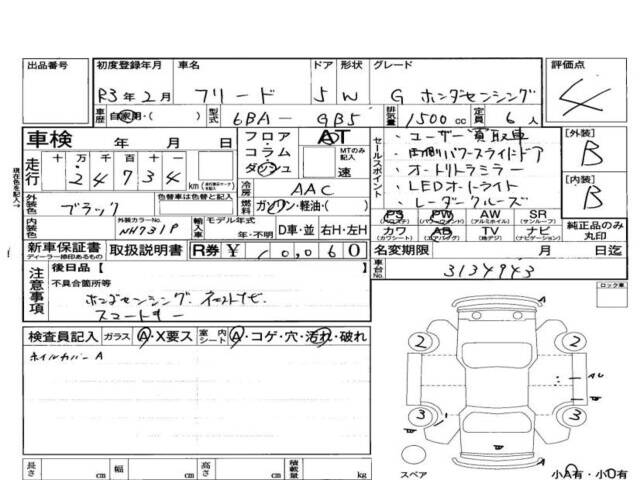 出品番号 初度登録年月 車名 ドア 形状 グレード 評価点
R3年2月 フリード 5 W G ホンダセンシング 4
車歴 自家用・( ) 型式 6BA- GB5 排気量 1500cc 定員 6人
車検 年 月 日 フロア コラム ダッシュ AT MTのみ記入 速
セールスポイント
・ユーザー買取車
・両側パワースライドドア
・オートドラミラー
・LEDオートライト
・レーダークルーズ
[外装] B
[内装] B
現在色を記入→
走行 十 万 千 百 十 一 km
2 4 7 3 4
冷房 AAC
外装色 ブラック 色替車は色替と記入
燃料 ガソリン・軽油・( )
PS PW AW SR
(パワステ) (パワーウィンドウ) (アルミホイル) (サンルーフ)
カワ AB TV ナビ
(カワシート) (エアバッグ) (地デジ) (ナビゲーション)
純正品のみ丸印
内装色 外装カラーNo. NH731P 輸入車 モデル年式 年・不明 D車・並 右H・左H
新車保証書 ディーラー捺印あるもの 取扱説明書 R券 ¥10,060
名変期限 月 日迄
車台No. 3134943
注意事項 後日品【 】
不具合箇所等
ホンダセンシング. ネットナビ.
スマートキー
ロック車
検査員記入 ガラス A・X要ス 室内シート A・コゲ・穴・汚れ・破れ
ホイルカバーA
A
2 2
3 3
スペア 小A有・小U有
長さ cm 幅 cm 高さ cm 積載量 kg